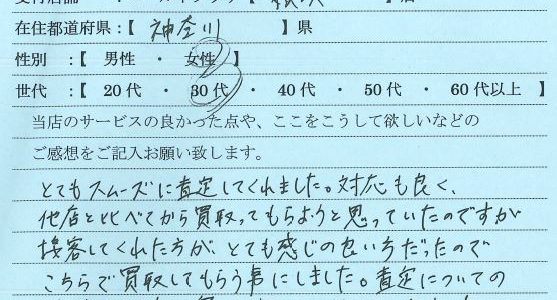 在住都道府県:【 神奈川 】県
性別 :【 男性 ・ 女性 】
世代 :【 20代 ・ 30代 ・ 40代 ・ 50代 ・ 60代以上 】
当店のサービスの良かった点や、ここをこうして欲しいなどの
ご感想をご記入お願い致します。
とてもスムーズに査定してくれました。対応も良く、
他店と比べてから買取ってもらようと思っていたのですが
接客してくれた方が、とても感じの良い方だったので
こちらで買取してもらう事にしました。査定についての